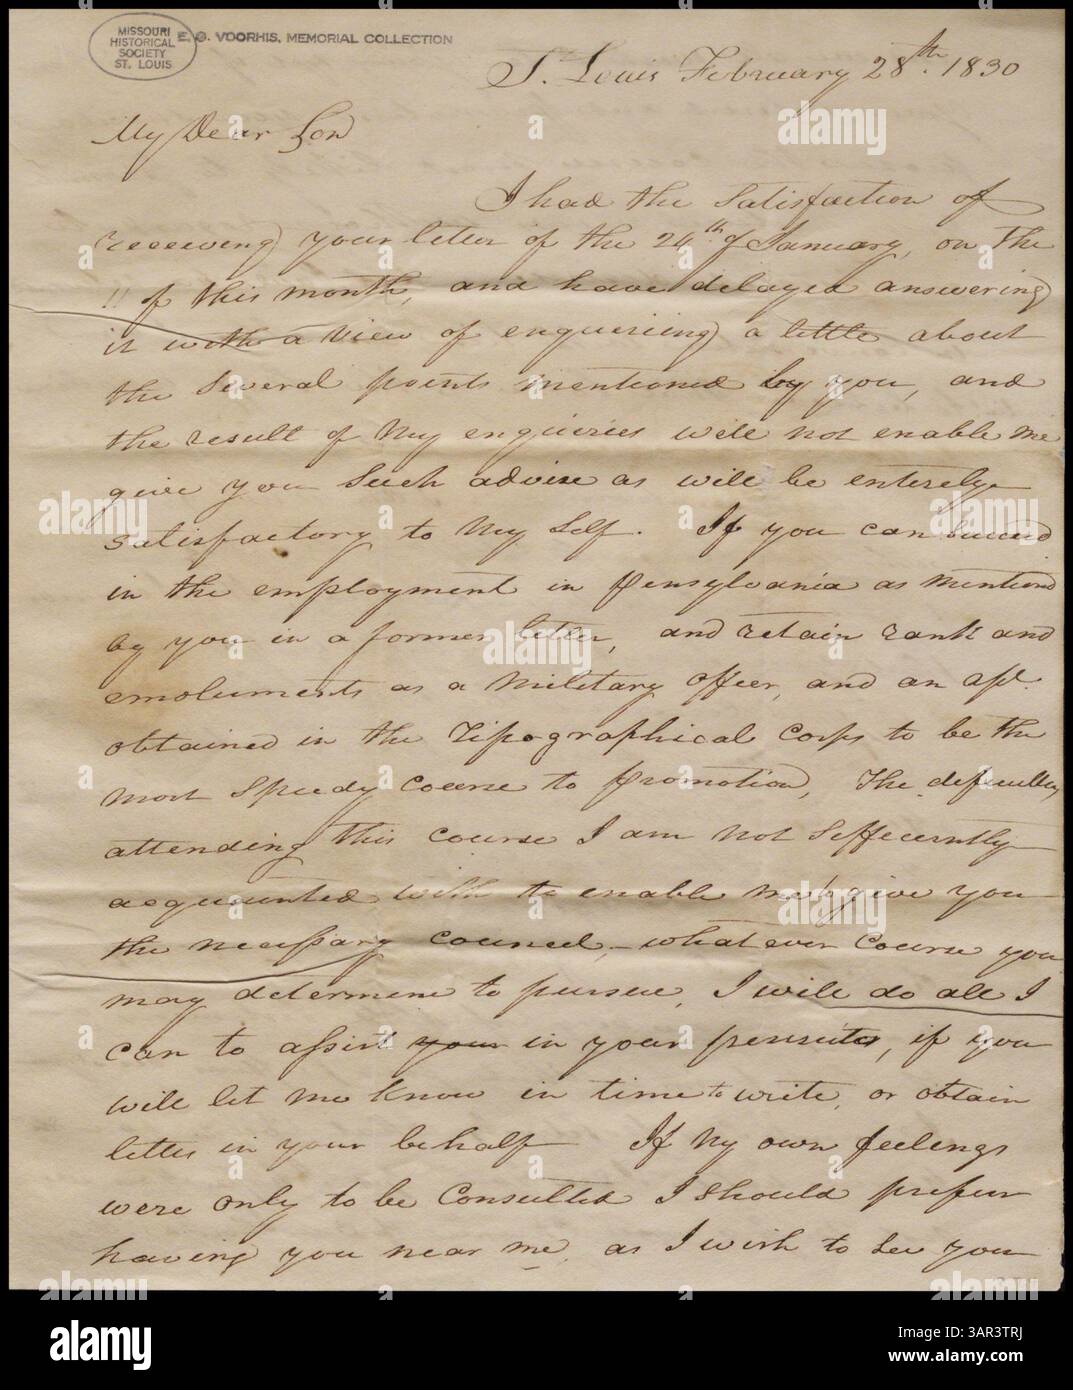 MISSOURI
HISTORICAL
SOCIETY
ST. LOUIS
E. G. VOORHIS, MEMORIAL COLLECTION
St. Louis February 28th. 1830
My Dear Son
I had the Satisfaction of
receeving your letter of the 24th of January, on the
11 of this month, and have delayed answering
it with a view of enqueriing a little about
the Several points mentioned by you, and
the result of my enquiries will not enable me
give you Such advise as will be enterely
satisfactory to my Self. If you can Succeed
in the employment in Pensylvania as mentioned
by you in a former letter, and retain rank and
emoluments as a Military officer, and an apt.
obtained in the Tipographical Corps to be the
most Speedy Course to Promotion, The deficulty
attending this course I am not Seffecently
acquainted with to enable me to give you
the necessary councel, - whatever Course you
may determine to persue, I will do all I
can to assist your in your persuits, if you
will let me know in time to write, or obtain
letter in your behalf If my own feelings
were only to be Consulted I should prefur
having you near me, as I wish to See you
alamy
3AR3TRJ
www.alamy.com